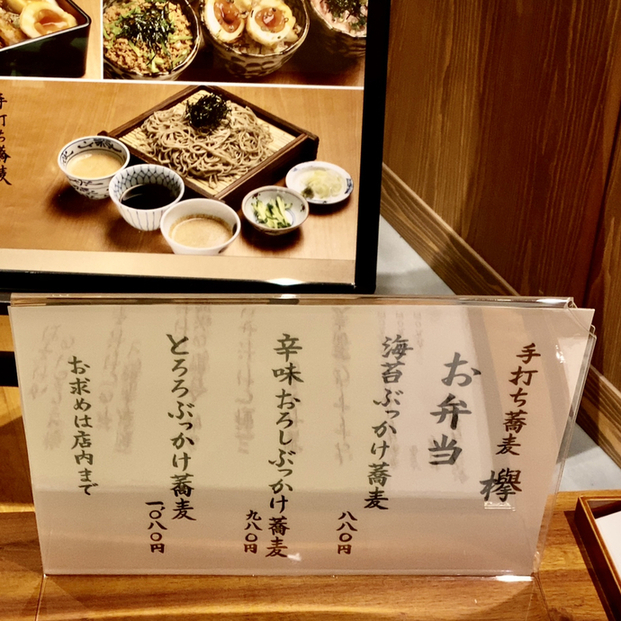 手打ち蕎麦
手打ち蕎麦 欅
お弁当
海苔ぶっかけ蕎麦
八八〇円
辛味おろしぶっかけ蕎麦
九八〇円
とろろぶっかけ蕎麦
一、〇八〇円
お求めは店内まで